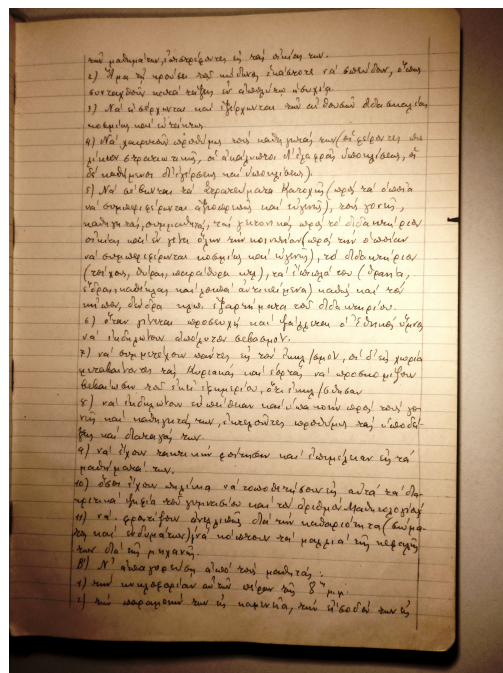 τῶν μαθημάτων, ἐπιστρέφοντες εἰς τὰς οἰκίας των.
2) Ἅμα τῇ κρούσει τοῦ κώδωνος ἑκάστοτε νὰ σπεύδουν, ὅπως
συνταχθοῦν κατὰ τάξεις ἐν ἀπολύτῳ ἡσυχίᾳ.
3) Νὰ εἰσέρχωνται καὶ ἐξέρχωνται τῶν αἰθουσῶν διδασκαλίας
κοσμίως καὶ εὐτάκτως.
4) Νὰ χαιρετοῦν προθύμως τοὺς καθηγητάς των (οἱ φέροντες πη-
λίκιον στρατιωτικῶς, οἱ ἀκάλυπτοι δι' ἐλαφρᾶς ὑποκλίσεως, οἱ
δὲ καθήμενοι δι' ἐγέρσεως καὶ ὑποκλίσεως).
5) Νὰ σέβωνται τὰ Στρατεύματα Κατοχῆς (πρὸς τὰ ὁποῖα
νὰ συμπεριφέρωνται ἀξιοπρεπῶς καὶ εὐγενῶς), τοὺς γονεῖς,
καθηγητάς, συμμαθητάς, τὰς γειτονικὰς πρὸς τὸ διδακτήριον
οἰκίας καὶ ἐν γένει ὅλην τὴν κοινωνίαν (πρὸς τὴν ὁποίαν
νὰ συμπεριφέρωνται κοσμίως καὶ εὐγενῶς), τὸ διδακτήριον
(τοίχους, θύρας, παράθυρα κτλ), τὰ ἔπιπλά του (θρανία,
ἕδρας, καθίσματα καὶ λοιπὰ ἀντικείμενα) καθὼς καὶ τὸν
κῆπον, δένδρα κλπ. ἐξαρτήματα τοῦ διδακτηρίου.
6) ὅταν γίνεται προσευχὴ καὶ ψάλλεται ὁ Ἐθνικὸς ὕμνος
νὰ ἐκδηλώνουν ἀπόλυτον σεβασμόν.
7) νὰ συμμετέχουν πάντες εἰς τὸν ἐκκλ/σμόν, οἱ δ' εἰς χωρία
μεταβαίνοντες τὰς Κυριακὰς καὶ ἑορτὰς νὰ προσκομίζουν
βεβαίωσιν τοῦ ἐκεῖ ἐφημερίου, ὅτι ἐκκλ/σθησαν
8) νὰ ἐκδηλώνουν εὐπείθειαν καὶ ὑπακοὴν πρὸς τοὺς γο-
νεῖς καὶ καθηγητάς των, ἐκτελοῦντες προθύμως τὰς ὑποδεί-
ξεις καὶ διαταγάς των.
9) νὰ ἔχουν τακτικὴν φοίτησιν καὶ ἐπιμέλειαν εἰς τὰ
μαθήματά των.
10) ὅσοι ἔχουν πηλίκια νὰ τοποθετήσουν εἰς αὐτὰ τὰ δια-
κριτικὰ ψηφία τοῦ γυμνασίου καὶ τὸν ἀριθμὸν Μαθητολογίου
11) νὰ φροντίζουν ἀνελλιπῶς διὰ τὴν καθαριότητα (σώμα-
τος καὶ ἐνδυμάτων) νὰ κόπτουν τὰ μαλλιὰ τῆς κεφαλῆς
των διὰ τῆς μηχανῆς.
Β' Ν' ἀπαγορεύσῃ ἀπὸ τοὺς μαθητάς:
1) τὴν κυκλοφορίαν αὐτῶν πέραν τῆς 8ης μμ.
2) τὴν παραμονήν των εἰς καφενεῖα, τὴν εἴσοδόν των εἰς